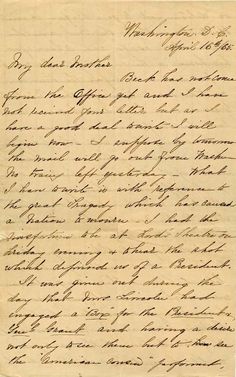 Washington, D. C.
April 16th/65.
My dear Mother
Beck has not come
from the Office yet and I have
not received your letter but as I
have a good deal to write I will
begin now - I suppose by tomorrow
the mail will go out from Wash-
No trains left yesterday - What
I have to write is with reference to
the great Tragedy which has caused
a Nation to mourn - I had the
misfortune to be at Fords Theatre on
Friday evening & to hear the shot
which deprived us of a President.
It was given out during the
day that Mrs Lincoln had
engaged a Box for the President &
Gen'l Grant and having a desire
not only to see them but to see
the "American cousin" performed,